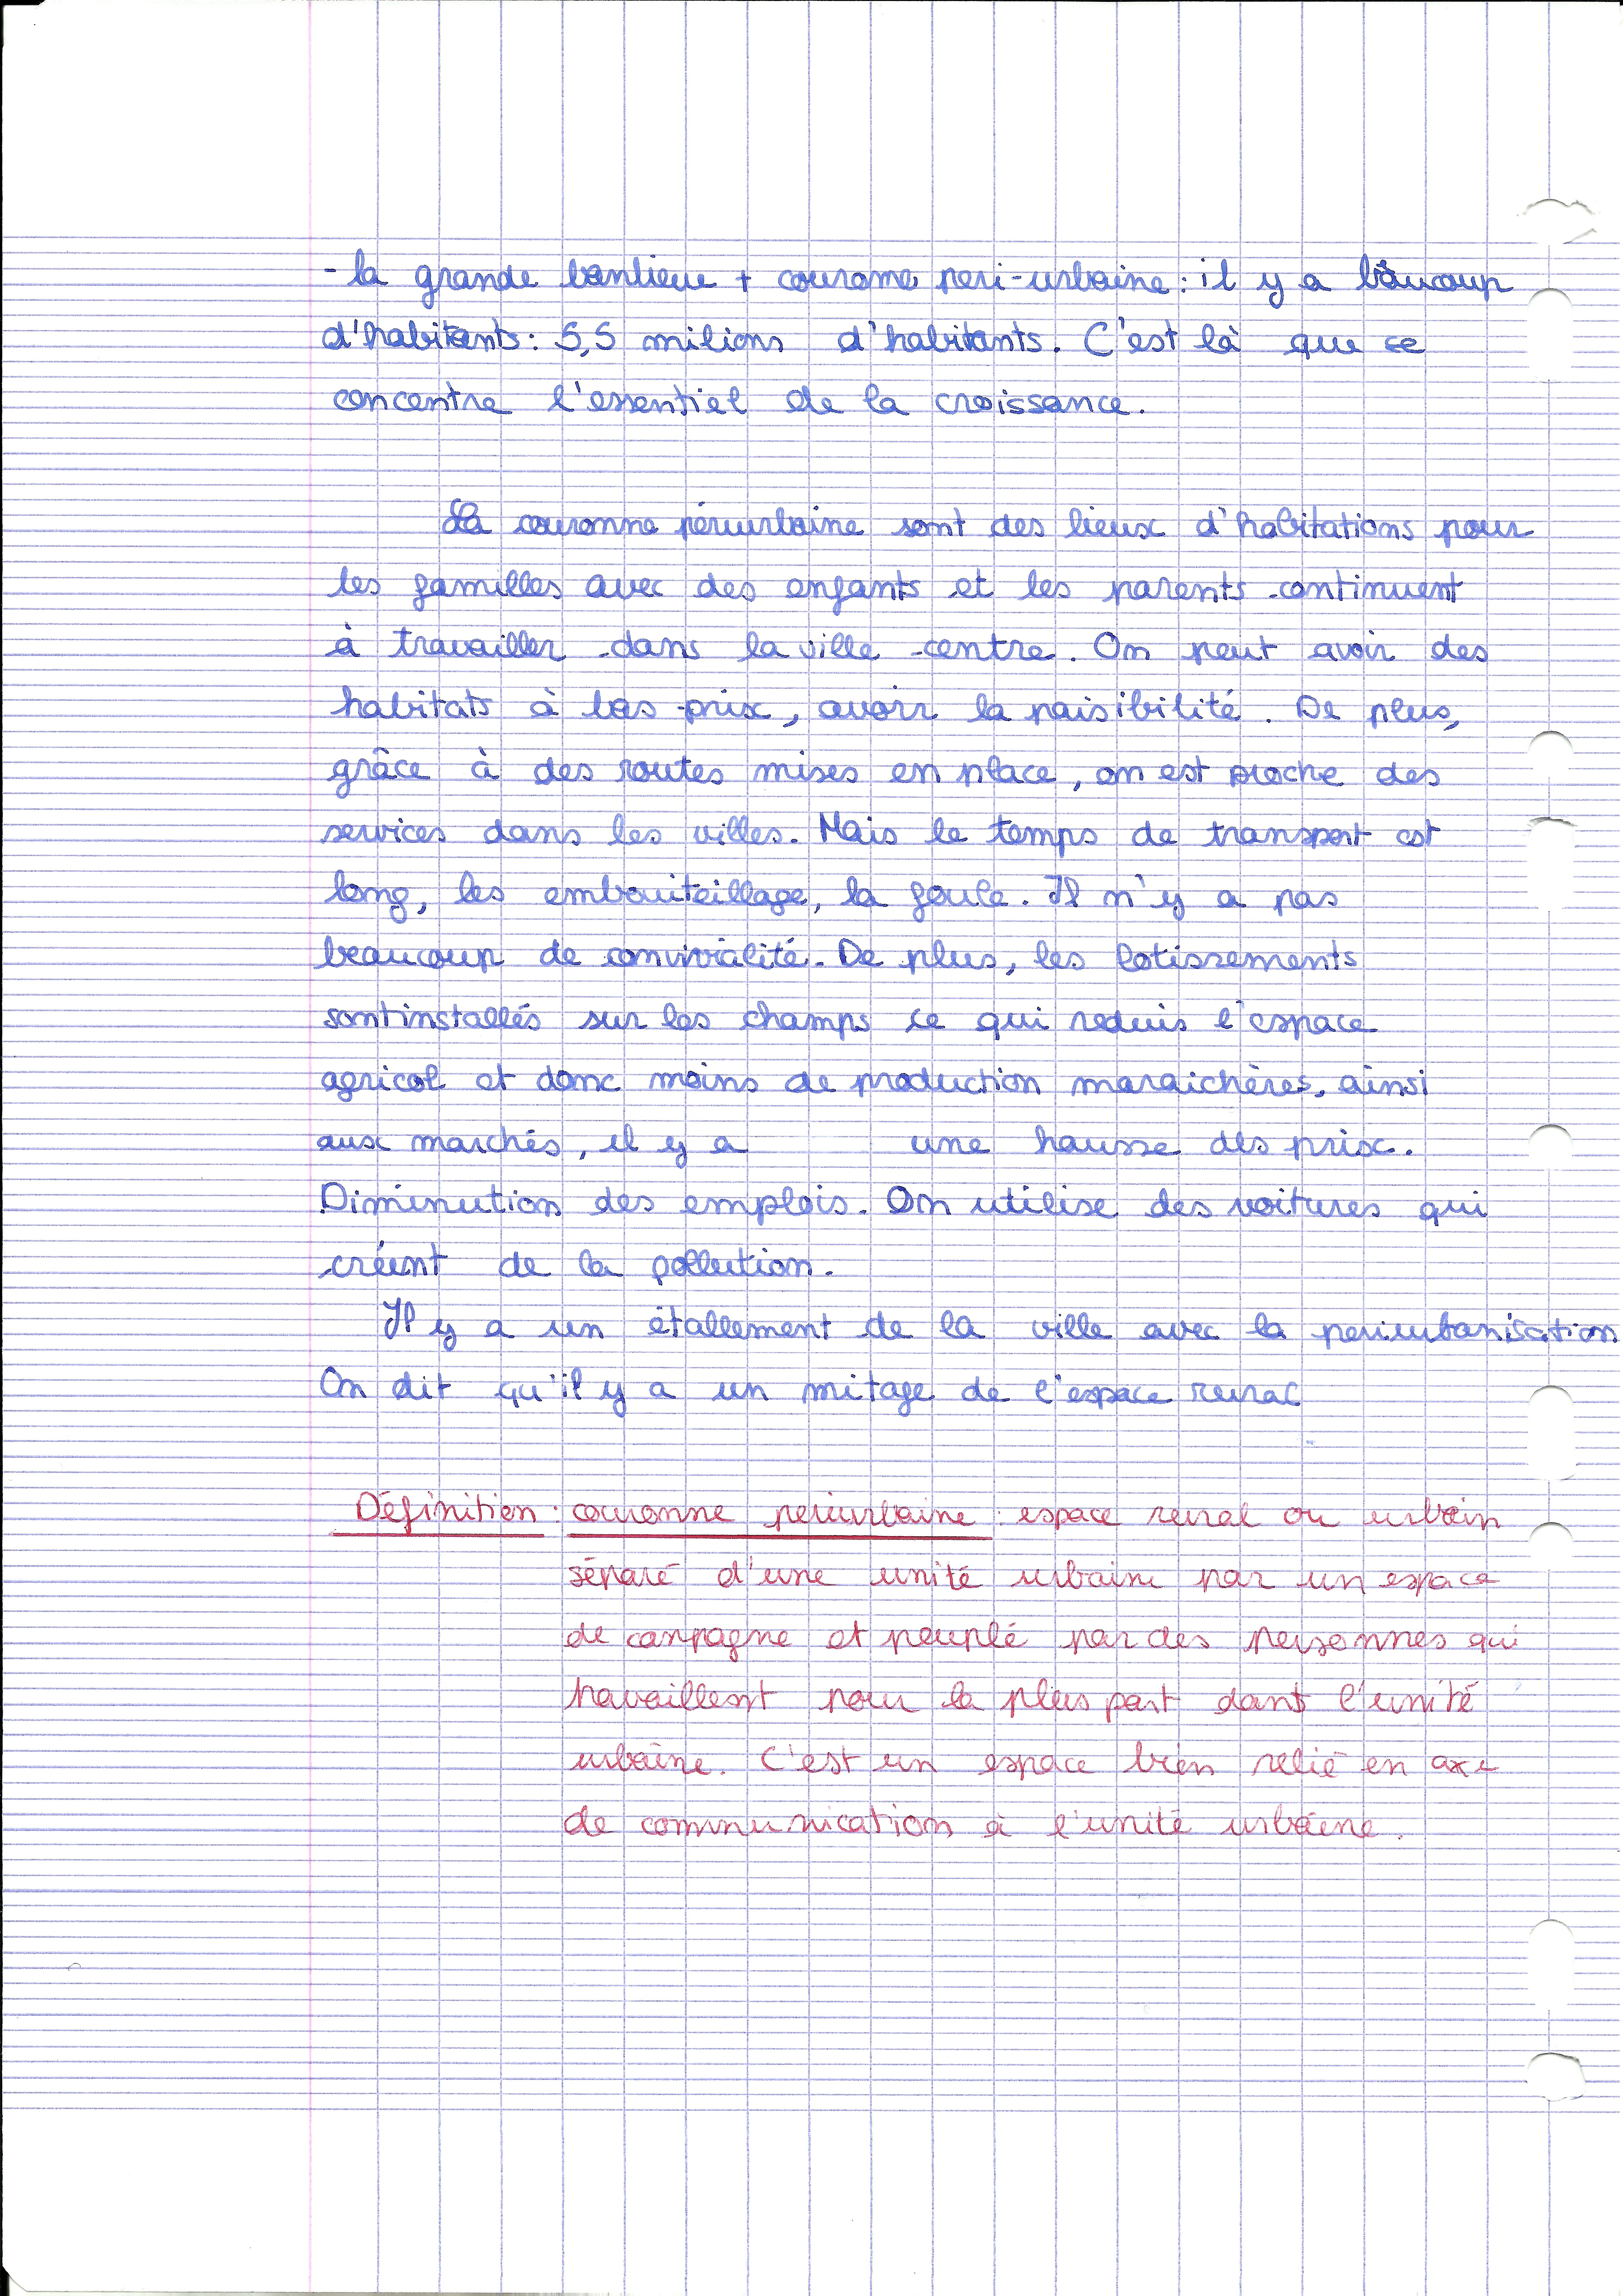 - la grande banlieue + courame peri-urbaine : il y a baucoup
d'habitants : 5,5 milions d'habitants. C'est là que se
concentre l'essentiel de la croissance.
La couronne périurbaine sont des lieux d'habitations pour
les familles avec des enfants et les parents continuent
à travailler dans la ville-centre. On peut avoir des
habitats à bas prix, avoir la paisibilité. De plus,
grâce à des routes mises en place, on est proche des
services dans les villes. Mais le temps de transport est
long, les embouiteillage, la foule. Il n'y a pas
beaucoup de convivialité. De plus, les lotissements
sont installés sur les champs ce qui reduis l'espace
agricol et donc moins de production maraichères, ainsi
aux marchés, il y a une hausse des prix.
Diminution des emplois. On utilise des voitures qui
créent de la pollution.
Il y a un étallement de la ville avec la periurbanisation
On dit qu'il y a un mitage de l'espace rural
Définition : couronne periurbaine : espace rural ou urbain
séparé d'une unité urbaine par un espace
de canpagne et peuplé par des personnes qui
travaillent pour la plus part dans l'unité
urbaine. C'est un espace bien relié en axe
de communication à l'unité urbaine.